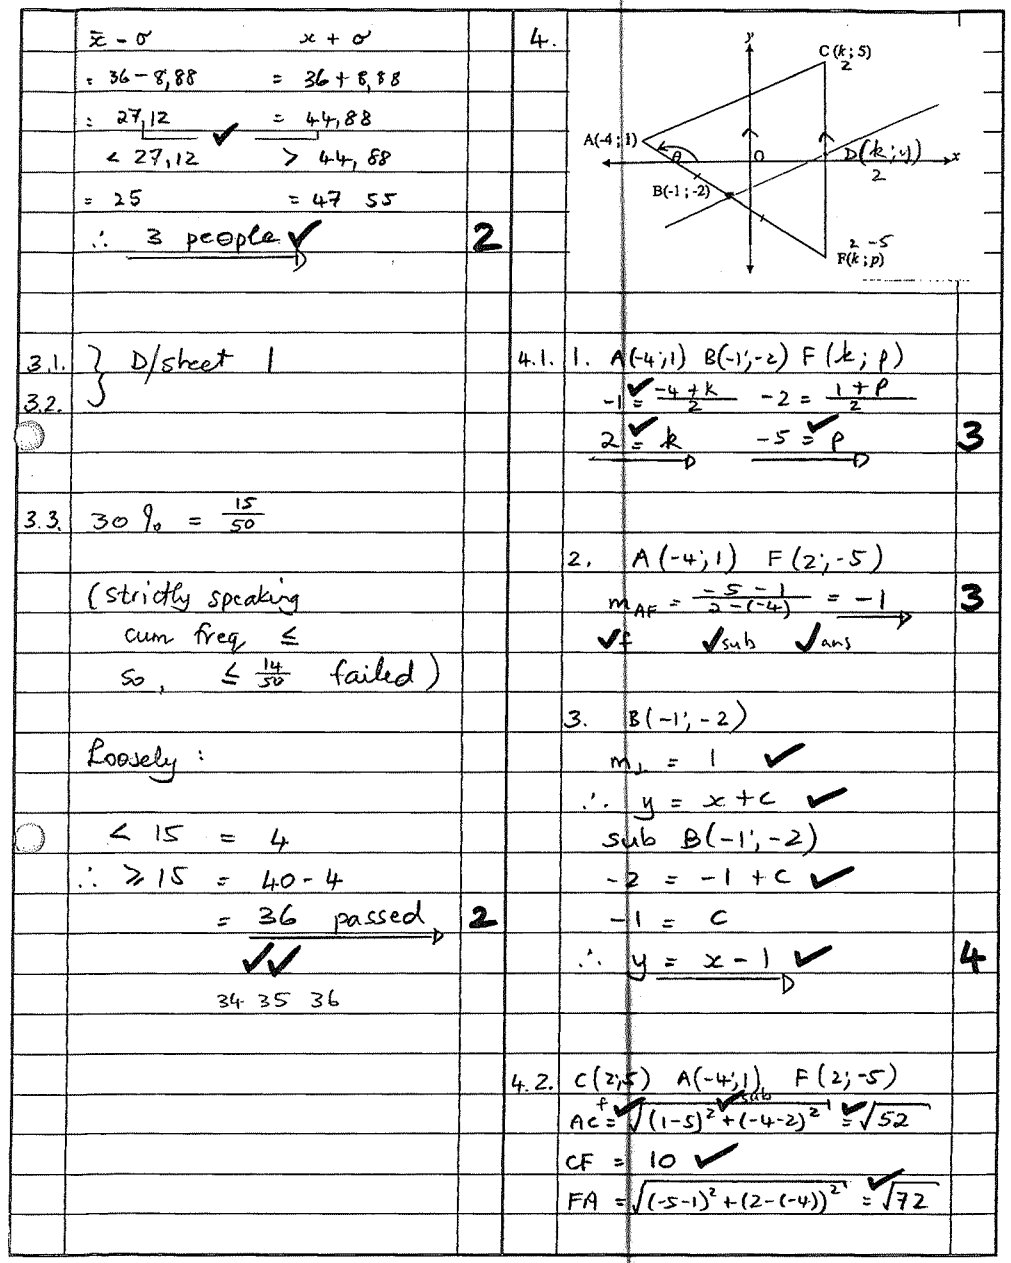 x̄ - σ    x + σ
= 36 - 8,88    = 36 + 8,88
= 27,12 ✓    = 44,88
< 27,12    > 44,88
= 25    = 47 55
∴ 3 people ✓    2
3.1. } D/sheet 1
3.2.
3.3. 30% = 15/50
(Strictly speaking
cum freq ≤
so, ≤ 14/50 failed)
Loosely:
< 15 = 4
∴ ≥ 15 = 40 - 4
= 36 passed    2
✓✓
34 35 36
4.
y
C(k ; 5)
2
A(-4 ; 1)
θ
O
D(k ; y)
2
x
B(-1 ; -2)
2 -5
F(k ; p)
4.1. 1. A(-4;1) B(-1;-2) F(k; p)
-1 ✓= (-4+k)/2    -2 = (1+p)/2
2 ✓= k    -5 ✓= p    3
2. A(-4;1) F(2;-5)
m AF = (-5-1)/(2-(-4)) = -1    3
✓f ✓sub ✓ans
3. B(-1;-2)
m⊥ = 1 ✓
∴ y = x + c ✓
sub B(-1;-2)
-2 = -1 + c ✓
-1 = c
∴ y = x - 1 ✓    4
4.2. C(2;5) A(-4;1) F(2;-5)
f ✓ ✓sub
AC = √((1-5)² + (-4-2)²) ✓= √52
CF = 10 ✓
FA = √((-5-1)² + (2-(-4))²) ✓= √72